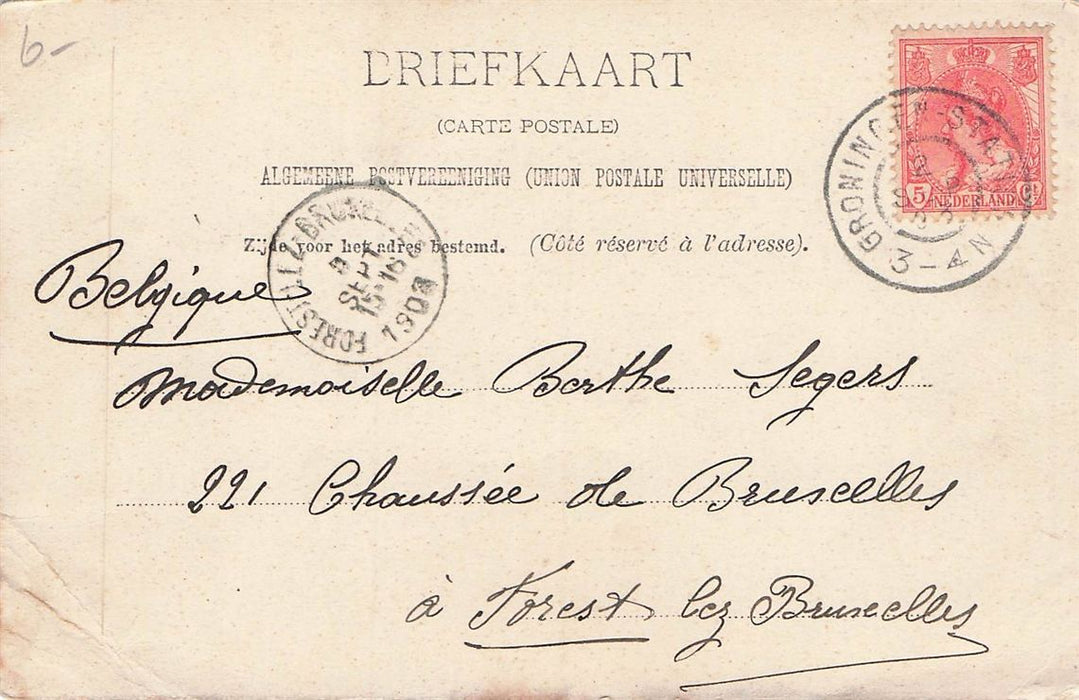 6-
BRIEFKAART
(CARTE POSTALE)
ALGEMEENE POSTVEREENIGING (UNION POSTALE UNIVERSELLE)
Zijde voor het adres bestemd. (Côté réservé à l'adresse).
5 Ct
NEDERLAND
GRONINGEN-STATION
3-4N
FOREST-LEZ-BRUXELLES
SEPT
1903
Belgique
Mademoiselle Berthe Segers
221 Chaussée de Bruxelles
à Forest lez Bruxelles